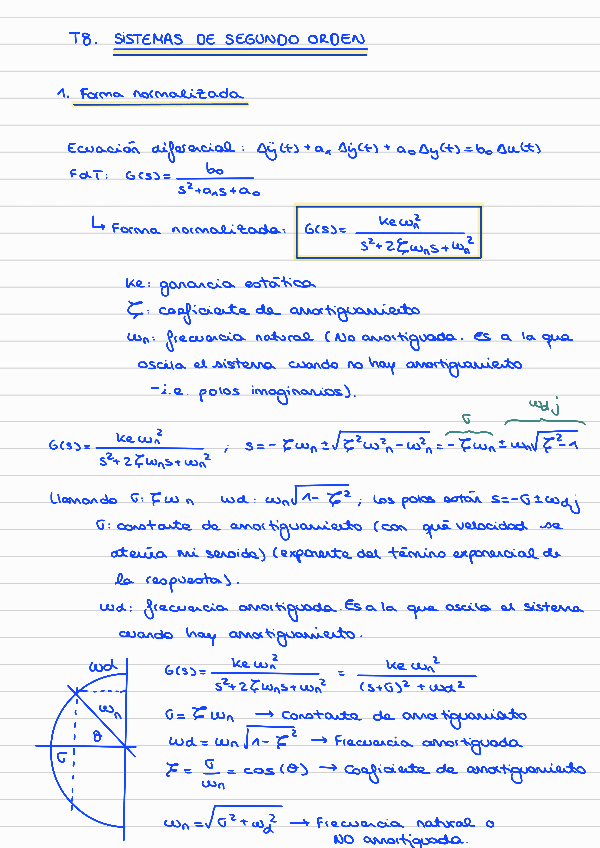 T8. SISTEMAS DE SEGUNDO ORDEN
1. Forma normalizada
Ecuación diferencial: Δÿ(t) + a₁ Δẏ(t) + a₀ Δy(t) = b₀ Δu(t)
FdT: G(s) = b₀ / (s² + a₁s + a₀)
↳ Forma normalizada: G(s) = keωn² / (s² + 2ζωns + ωn²)
ke: ganancia estática
ζ: coeficiente de amortiguamiento
ωn: frecuencia natural (No amortiguada. Es a la que
oscila el sistema cuando no hay amortiguamiento
-i.e. polos imaginarios).
σ ωdj
G(s) = keωn² / (s² + 2ζωns + ωn²) ; s = -ζωn ± √(ζ²ωn² - ωn²) = -ζωn ± ωn√(ζ² - 1)
Llamando σ: ζωn ωd: ωn√(1 - ζ²) ; los polos están s = -σ ± ωdj
σ: constante de amortiguamiento (con qué velocidad se
atenúa mi senoide) (exponente del término exponencial de
la respuesta).
ωd: frecuencia amortiguada. Es a la que oscila el sistema
cuando hay amortiguamiento.
ωd
ωn
θ
σ
G(s) = keωn² / (s² + 2ζωns + ωn²) = keωn² / ((s+σ)² + ωd²)
σ = ζωn → Constante de amortiguamiento
ωd = ωn√(1 - ζ²) → Frecuencia amortiguada
ζ = σ/ωn = cos(θ) → Coeficiente de amortiguamiento
ωn = √(σ² + ωd²) → Frecuencia natural o
NO amortiguada.